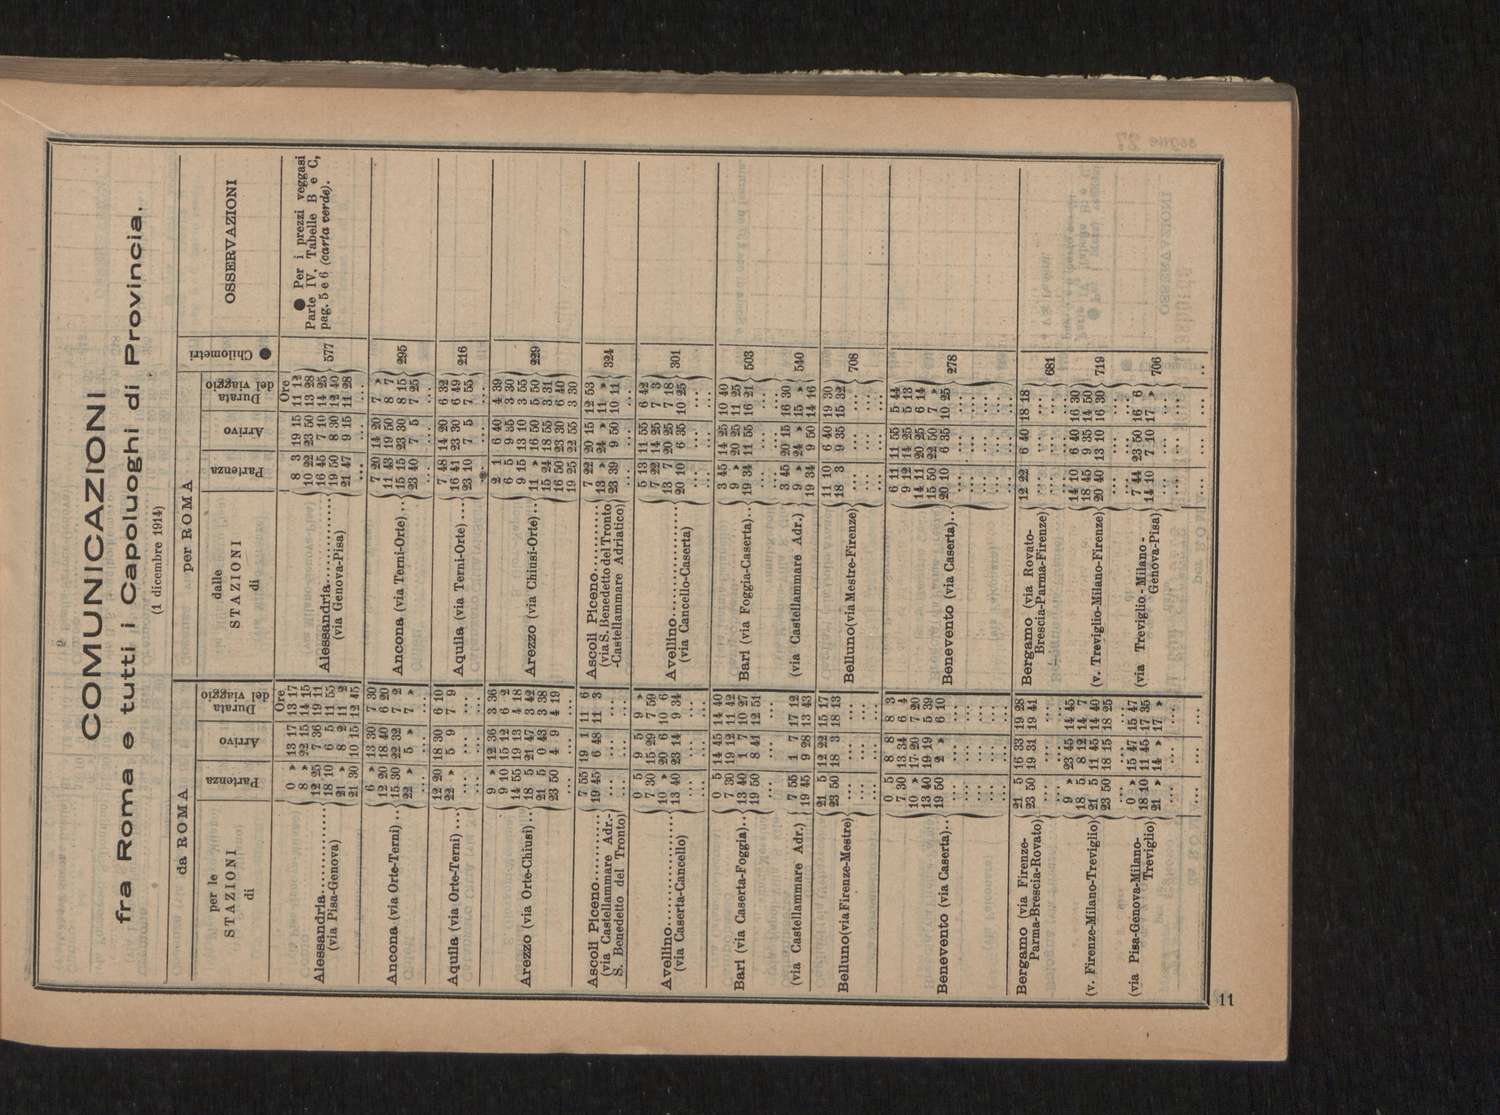 COMUNICAZIONI
fra Roma e tutti i Capoluoghi di Provincia.
(1 dicembre 1914)
da ROMA
per ROMA
OSSERVAZIONI
per le STAZIONI di
Partenza
Arrivo
Durata del viaggio
dalle STAZIONI di
Partenza
Arrivo
Durata del viaggio
● Chilometri
Alessandria (via Pisa-Genova)
0 » 13 17 Ore 13 17
8 » 22 15 14 15
12 25 7 36 19 11
18 10 6 5 11 55
21 » 8 2 11 2
21 30 10 15 12 45
Alessandria (via Genova-Pisa)
8 3 19 15 Ore 11 12
10 22 23 50 13 28
16 45 7 10 14 25
19 50 8 30 12 40
21 47 9 15 11 28
577
● Per i prezzi veggasi
Parte IV, Tabelle B e C,
pag. 5 e 6 (carta verde).
Ancona (via Orte-Terni)
6 » 13 30 7 30
12 20 18 40 6 20
15 30 22 32 7 2
22 » 5 » 7 »
Ancona (via Terni-Orte)
7 20 14 20 7 »
11 43 19 50 8 7
15 15 23 30 8 15
23 40 7 5 7 25
295
Aquila (via Orte-Terni)
12 20 18 30 6 10
22 » 5 9 7 9
Aquila (via Terni-Orte)
7 48 14 20 6 32
16 41 23 30 6 49
23 10 7 5 7 55
216
Arezzo (via Orte-Chiusi)
9 » 12 36 3 36
9 10 15 12 6 2
14 55 19 13 4 18
18 5 21 47 3 42
21 5 0 43 3 38
23 50 4 9 4 19
Arezzo (via Chiusi-Orte)
2 1 6 40 4 39
6 5 9 35 3 30
9 15 13 10 3 55
11 » 16 50 5 50
15 24 18 55 3 31
16 50 23 30 6 40
19 25 22 55 3 30
229
Ascoli Piceno
(via Castellammare Adr.-
S. Benedetto del Tronto)
7 55 19 1 11 6
19 45 6 48 11 3
Ascoli Piceno
(via S. Benedetto del Tronto
-Castellammare Adriatico)
7 22 20 15 12 53
13 » 24 » 11 »
23 39 9 50 10 11
324
Avellino
(via Caserta-Cancello)
0 5 9 5 9 »
7 30 15 29 7 59
10 » 20 6 10 6
13 40 23 14 9 34
Avellino
(via Cancello-Caserta)
5 13 11 55 6 42
7 22 14 25 7 3
13 7 20 25 7 18
20 10 6 35 10 25
301
Bari (via Caserta-Foggia)
0 5 14 45 14 40
7 30 19 12 11 42
13 40 1 7 10 27
19 50 8 41 12 51
Bari (via Foggia-Caserta)
3 45 14 25 10 40
9 » 20 25 11 25
19 34 11 55 16 21
503
(via Castellammare Adr.)
7 55 1 7 17 12
19 45 9 28 13 43
(via Castellammare Adr.)
3 45 20 15 16 30
9 » 24 » 15 »
19 34 9 50 14 16
540
Belluno (via Firenze-Mestre)
21 5 12 22 15 17
23 50 18 3 18 13
Belluno (via Mestre-Firenze)
11 10 6 40 19 30
18 3 9 35 15 32
708
Benevento (via Caserta)
0 5 8 8 8 3
7 30 13 34 6 4
10 » 17 20 7 20
13 40 19 19 5 39
19 50 2 » 6 10
Benevento (via Caserta)
6 11 11 55 5 44
9 12 14 25 5 13
14 11 20 25 6 14
15 50 22 50 7 »
20 10 6 35 10 25
278
Bergamo (via Firenze-
Parma-Brescia-Rovato)
21 5 16 33 19 28
23 50 19 31 19 41
Bergamo (via Rovato-
Brescia-Parma-Firenze)
12 22 6 40 18 18
681
(v. Firenze-Milano-Treviglio)
9 » 23 45 14 45
18 5 8 12 14 7
21 5 11 45 14 40
23 50 18 15 18 25
(v. Treviglio-Milano-Firenze)
14 10 6 40 16 30
18 45 9 35 14 50
20 40 13 10 16 30
719
(via Pisa-Genova-Milano-
Treviglio)
0 » 15 47 15 47
18 10 11 45 17 35
21 » 14 » 17 »
(via Treviglio-Milano-
Genova-Pisa)
7 44 23 50 16 6
14 10 7 10 17 »
706
11